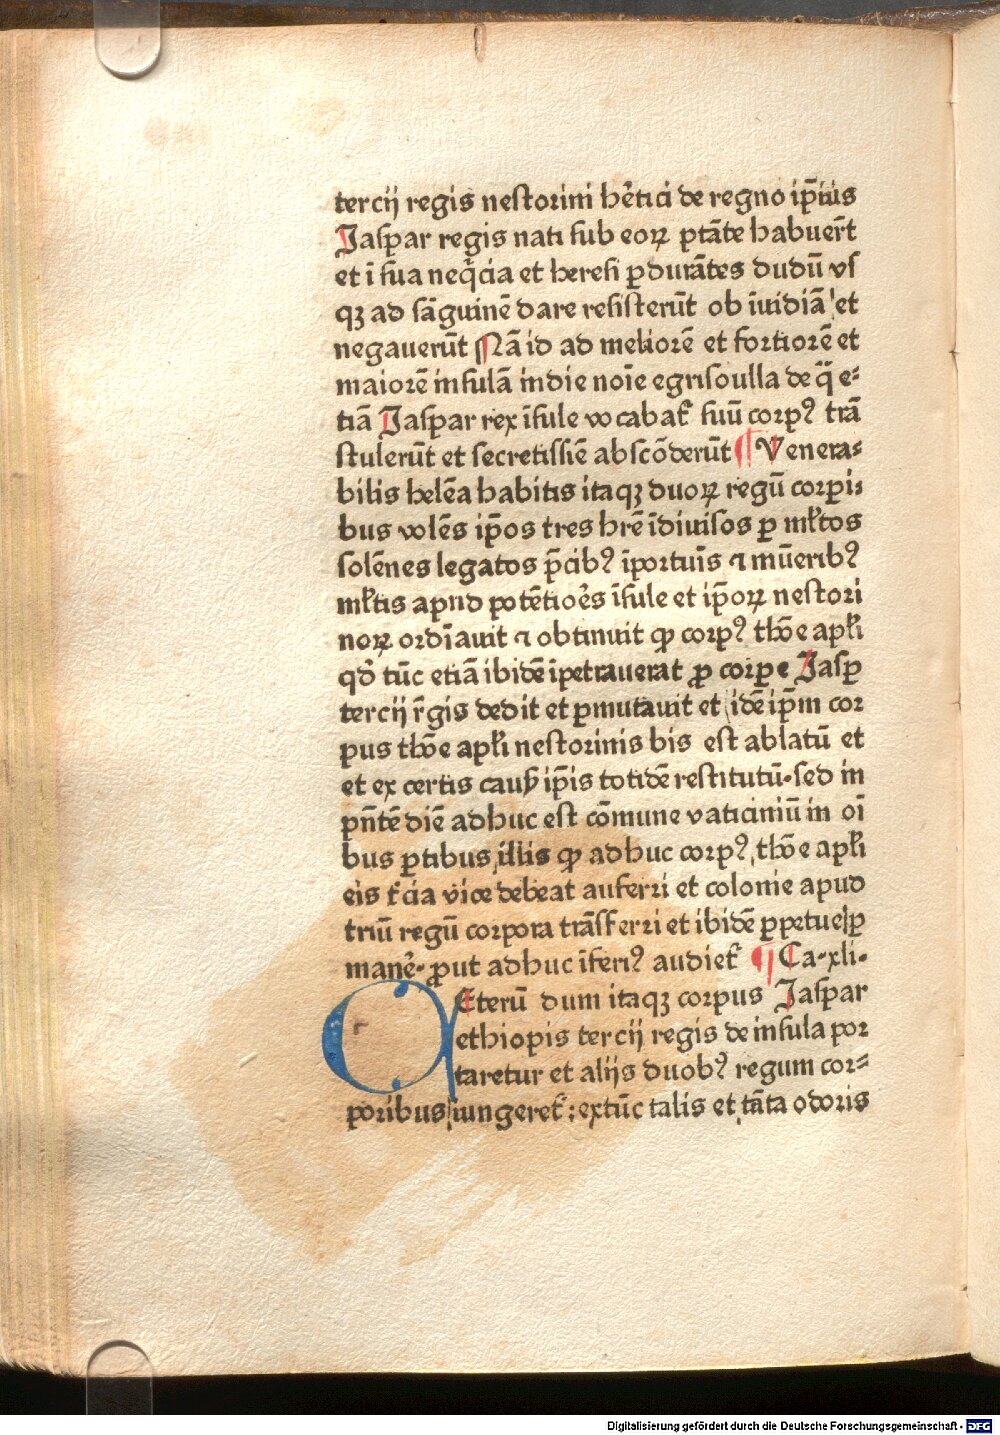 tercij regis nestorini hẽtici de regno ip̃ius
Jaspar regis nati sub eoꝝ ptãte habuer̃t
et ĩ sua neq̃cia et heresi ꝑdurãtes dudũ vs
qꝫ ad sãguinẽ dare resisterũt ob ĩuidiã et
negauerũt Nã id ad meliorẽ et fortiorẽ et
maiorẽ insulã indie noĩe egrisoulla de q̃ e⸗
tiã Jaspar rex ĩsule vocabat᷑ suũ corpꝰ trã
stulerũt et secretissiẽ abscõderũt Venera⸗
bilis helẽa habitis itaqꝫ duoꝝ regũ corpi⸗
bus volẽs ip̃os tres hrẽ ĩdiuisos ꝑ mľtos
solẽnes legatos p̃cibꝰ ĩportuĩs ⁊ mũeribꝰ
mľtis apud potẽtioẽs ĩsule et ip̃oꝝ nestori
noꝝ ordĩauit ⁊ obtinuit ꝙ corpꝰ thõe apľi
qd̃ tũc etiã ibidẽ ĩpetrauerat ꝓ corpe Jasꝑ
tercij r̃gis dedit et ꝑmutauit et idẽ ip̃m cor
pus thõe apľi nestorinis bis est ablatũ et
et ex certis cauß ip̃is totidẽ restitutũ. sed in
pñtẽ diẽ adhuc est cõmune vaticiniũ in oĩ
bus ꝑtibus illis ꝙ adhuc corpꝰ thõe apľi
eis t᷑cia vice debeat auferri et colonie apud
triũ regũ corpora trãsferri et ibidẽ ꝑpetue ꝑ
manẽ. ꝓut adhuc ĩferiꝰ audiet᷑ ¶ Ca. xli.
CEterũ dum itaqꝫ corpus Jaspar
ethiopis tercij regis de insula por
taretur et alijs duobꝰ regum cor⸗
poribus iungeret᷑: extũc talis et tãta odoris
Digitalisierung gefördert durch die Deutsche Forschungsgemeinschaft - DFG